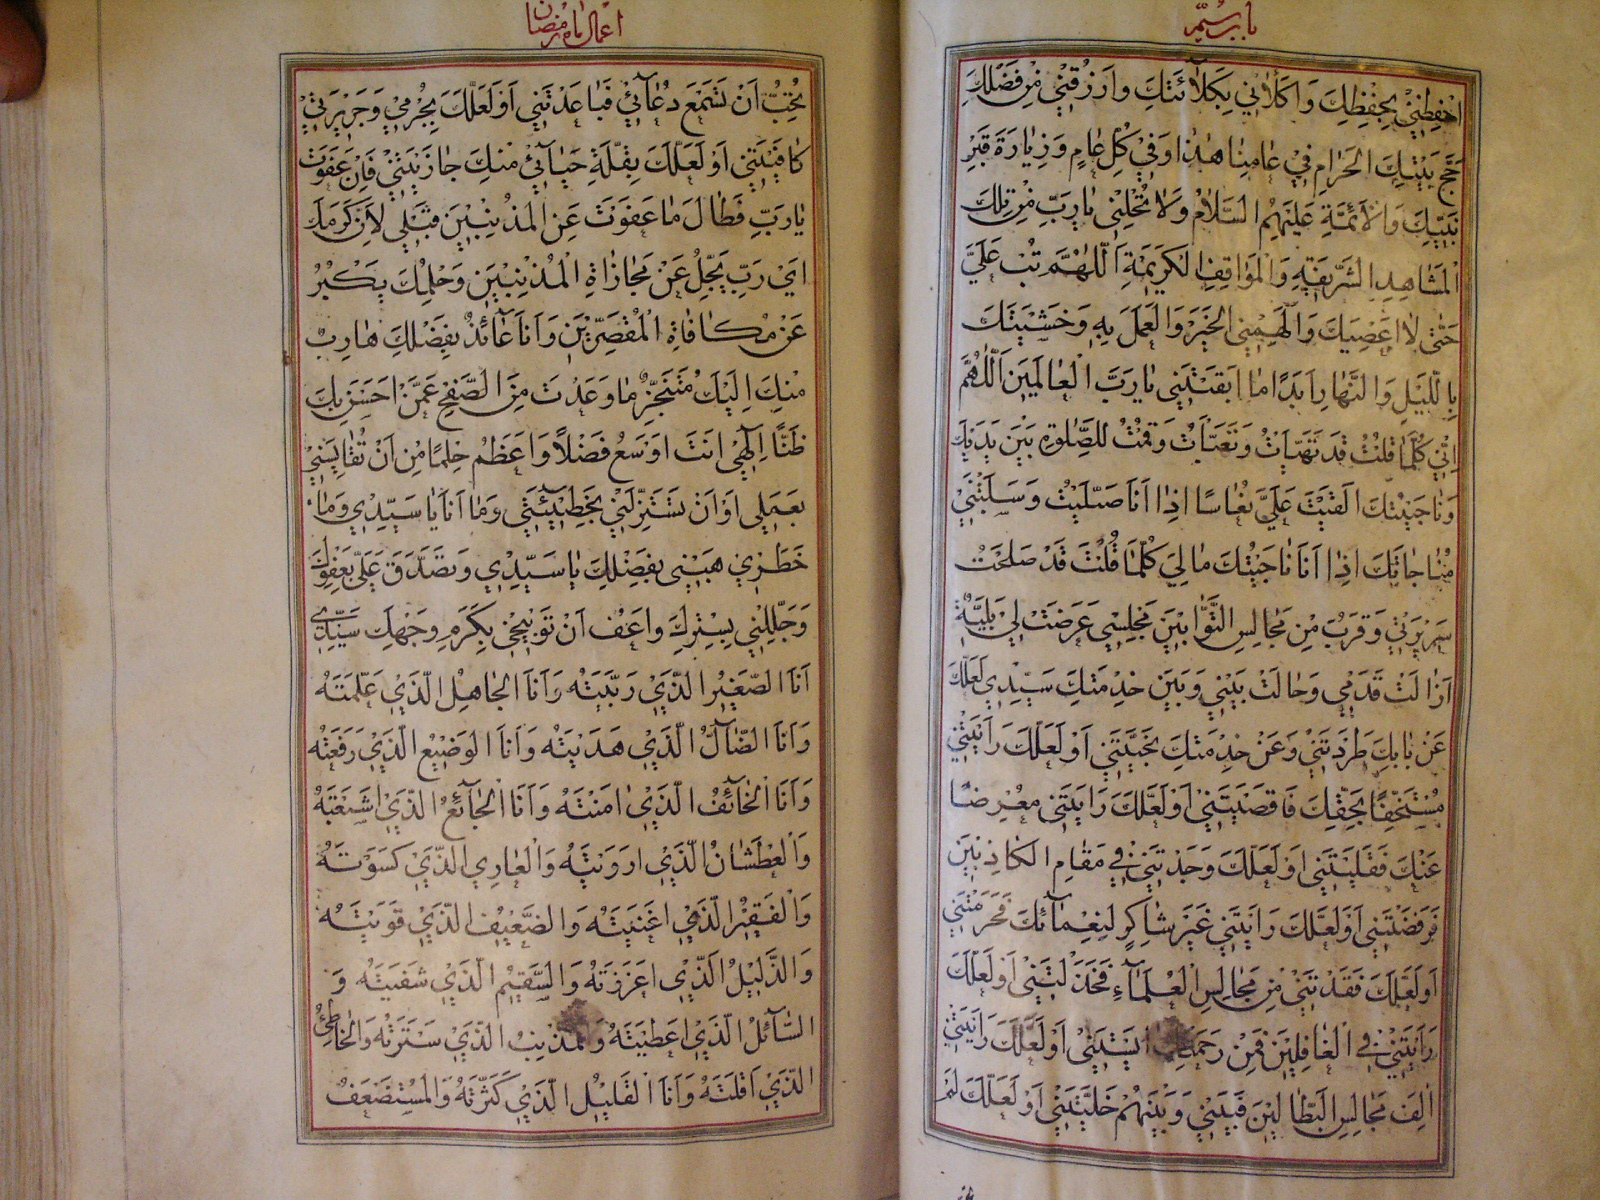 باب سیّم
احْفَظْنِي بِحِفْظِكَ وَاكْلَأْنِي بِكَلَائَتِكَ وَارْزُقْنِي مِنْ فَضْلِكَ
حَجَّ بَيْتِكَ الْحَرَامِ فِي عَامِنَا هٰذَا وَفِي كُلِّ عَامٍ وَزِيَارَةَ قَبْرِ
نَبِيِّكَ وَالْأَئِمَّةِ عَلَيْهِمُ السَّلَامُ وَلَا تُخْلِنِي يَا رَبِّ مِنْ تِلْكَ
الْمَشَاهِدِ الشَّرِيفَةِ وَالْمَوَاقِفِ الْكَرِيمَةِ اَللّٰهُمَّ تُبْ عَلَيَّ
حَتّٰى لَا اَعْصِيَكَ وَاَلْهِمْنِي الْخَيْرَ وَالْعَمَلَ بِهِ وَخَشْيَتَكَ
بِاللَّيْلِ وَالنَّهَارِ اَبَدًا مَا اَبْقَيْتَنِي يَا رَبَّ الْعَالَمِينَ اَللّٰهُمَّ
اِنِّي كُلَّمَا قُلْتُ قَدْ تَهَيَّأْتُ وَتَعَبَّأْتُ وَقُمْتُ لِلصَّلٰوةِ بَيْنَ يَدَيْكَ
وَنَاجَيْتُكَ اَلْقَيْتَ عَلَيَّ نُعَاسًا اِذَا اَنَا صَلَّيْتُ وَسَلَبْتَنِي
مُنَاجَاتَكَ اِذَا اَنَا نَاجَيْتُكَ مَا لِيَ كُلَّمَا قُلْتُ قَدْ صَلَحَتْ
سَرِيرَتِي وَقَرُبَ مِنْ مَجَالِسِ التَّوَّابِينَ مَجْلِسِي عَرَضَتْ لِي بَلِيَّةٌ
اَزَالَتْ قَدَمِي وَحَالَتْ بَيْنِي وَبَيْنَ خِدْمَتِكَ سَيِّدِي لَعَلَّكَ
عَنْ بَابِكَ طَرَدْتَنِي وَعَنْ خِدْمَتِكَ نَحَّيْتَنِي اَوْ لَعَلَّكَ رَاَيْتَنِي
مُسْتَخِفًّا بِحَقِّكَ فَاَقْصَيْتَنِي اَوْ لَعَلَّكَ رَاَيْتَنِي مُعْرِضًا
عَنْكَ فَقَلَيْتَنِي اَوْ لَعَلَّكَ وَجَدْتَنِي فِي مَقَامِ الْكَاذِبِينَ
فَرَفَضْتَنِي اَوْ لَعَلَّكَ رَاَيْتَنِي غَيْرَ شَاكِرٍ لِنَعْمَآئِكَ فَحَرَمْتَنِي
اَوْ لَعَلَّكَ فَقَدْتَنِي مِنْ مَجَالِسِ الْعُلَمَآءِ فَخَذَلْتَنِي اَوْ لَعَلَّكَ
رَاَيْتَنِي فِي الْغَافِلِينَ فَمِنْ رَحْمَتِكَ اٰيَسْتَنِي اَوْ لَعَلَّكَ رَاَيْتَنِي
اٰلِفَ مَجَالِسِ الْبَطَّالِينَ فَبَيْنِي وَبَيْنَهُمْ خَلَّيْتَنِي اَوْ لَعَلَّكَ لَمْ
اعمال ماه رمضان
تُحِبَّ اَنْ تَسْمَعَ دُعَآئِي فَبَاعَدْتَنِي اَوْ لَعَلَّكَ بِجُرْمِي وَجَرِيرَتِي
كَافَيْتَنِي اَوْ لَعَلَّكَ بِقِلَّةِ حَيَآئِي مِنْكَ جَازَيْتَنِي فَاِنْ عَفَوْتَ
يَا رَبِّ فَطَالَ مَا عَفَوْتَ عَنِ الْمُذْنِبِينَ قَبْلِي لِاَنَّ كَرَمَكَ
اَيْ رَبِّ يَجِلُّ عَنْ مُجَازَاةِ الْمُذْنِبِينَ وَحِلْمُكَ يَكْبُرُ
عَنْ مُكَافَاةِ الْمُقَصِّرِينَ وَاَنَا عَآئِذٌ بِفَضْلِكَ هَارِبٌ
مِنْكَ اِلَيْكَ مُتَنَجِّزٌ مَا وَعَدْتَ مِنَ الصَّفْحِ عَمَّنْ اَحْسَنَ بِكَ
ظَنًّا اِلٰهِي اَنْتَ اَوْسَعُ فَضْلًا وَاَعْظَمُ حِلْمًا مِنْ اَنْ تُقَايِسَنِي
بِعَمَلِي اَوْ اَنْ تَسْتَزِلَّنِي بِخَطِيئَتِي وَمَا اَنَا يَا سَيِّدِي وَمَا
خَطَرِي هَبْنِي بِفَضْلِكَ يَا سَيِّدِي وَتَصَدَّقْ عَلَيَّ بِعَفْوِكَ
وَجَلِّلْنِي بِسِتْرِكَ وَاعْفُ اَنْ تَوْبِيخِي بِكَرَمِ وَجْهِكَ سَيِّدِي
اَنَا الصَّغِيرُ الَّذِي رَبَّيْتَهُ وَاَنَا الْجَاهِلُ الَّذِي عَلَّمْتَهُ
وَاَنَا الضَّآلُّ الَّذِي هَدَيْتَهُ وَاَنَا الْوَضِيعُ الَّذِي رَفَعْتَهُ
وَاَنَا الْخَآئِفُ الَّذِي اٰمَنْتَهُ وَاَنَا الْجَآئِعُ الَّذِي اَشْبَعْتَهُ
وَالْعَطْشَانُ الَّذِي اَرْوَيْتَهُ وَالْعَارِي الَّذِي كَسَوْتَهُ
وَالْفَقِيرُ الَّذِي اَغْنَيْتَهُ وَالضَّعِيفُ الَّذِي قَوَّيْتَهُ
وَالذَّلِيلُ الَّذِي اَعْزَزْتَهُ وَالسَّقِيمُ الَّذِي شَفَيْتَهُ وَ
السَّآئِلُ الَّذِي اَعْطَيْتَهُ وَالْمُذْنِبُ الَّذِي سَتَرْتَهُ وَالْخَاطِئُ
الَّذِي اَقَلْتَهُ وَاَنَا الْقَلِيلُ الَّذِي كَثَّرْتَهُ وَالْمُسْتَضْعَفُ